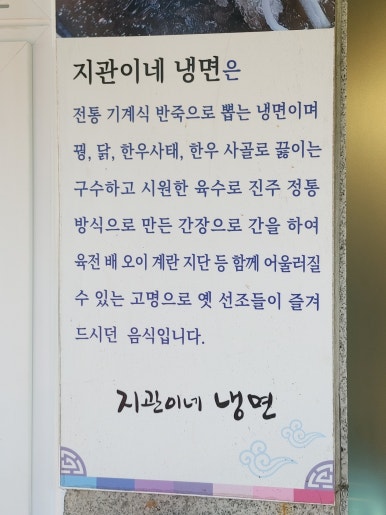 지관이네 냉면은
전통 기계식 반죽으로 뽑는 냉면이며
꿩, 닭, 한우사태, 한우 사골로 끓이는
구수하고 시원한 육수로 진주 정통
방식으로 만든 간장으로 간을 하여
육전 배 오이 계란 지단 등 함께 어울러질
수 있는 고명으로 옛 선조들이 즐겨
드시던 음식입니다.
지관이네 냉면